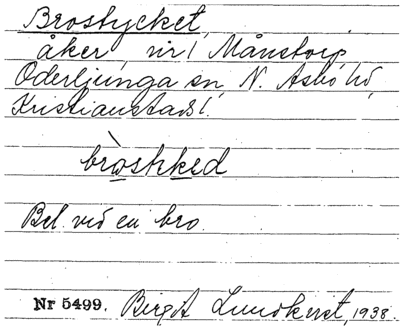 Brostycket,
åker, nr 1, Månstorp,
Oderljunga sn, N. Åsbo hd,
Kristianstads l.
bròshked
Bel. vid en bro.
Nr 5499. Birgit Lundkvist, 1938.